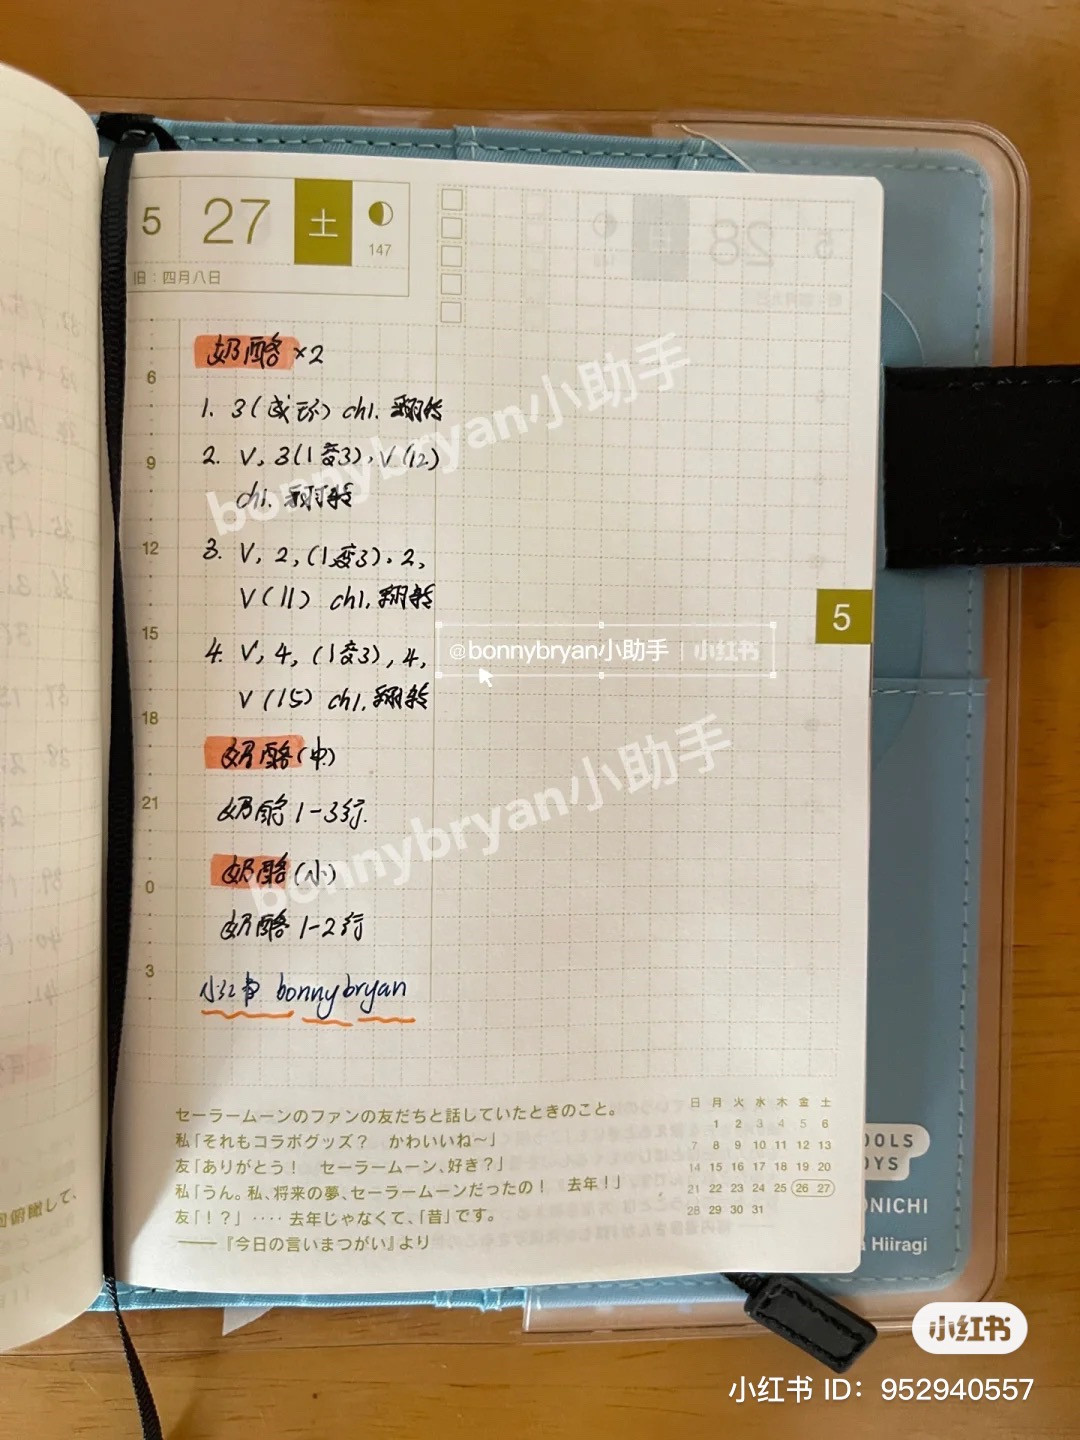 5 27 土
147
旧：四月八日
奶酪×2
6
1. 3(成环) ch1. 翻转
9
2. V, 3(1变3), V (12)
ch1. 翻转
12
3. V, 2, (1变3), 2,
V (11) ch1. 翻转
15
4. V, 4, (1变3), 4,
V (15) ch1. 翻转
18
奶酪(中)
21
奶酪1-3行.
奶酪(小)
0
奶酪1-2行
3
小红书 bonnybryan
5
@bonnybryan小助手 | 小红书
bonnybryan小助手
bonnybryan小助手
セーラームーンのファンの友だちと話していたときのこと。
私「それもコラボグッズ？　かわいいね〜」
友「ありがとう！　セーラームーン、好き？」
私「うん。私、将来の夢、セーラームーンだったの！　去年！」
友「！？」‥‥去年じゃなくて、「昔」です。
——『今日の言いまつがい』より
日 月 火 水 木 金 土
1 2 3 4 5 6
7 8 9 10 11 12 13
14 15 16 17 18 19 20
21 22 23 24 25 26 27
28 29 30 31
俯瞰して、
OOLS
OYS
ONICHI
Hiiragi
小红书
小红书 ID: 952940557